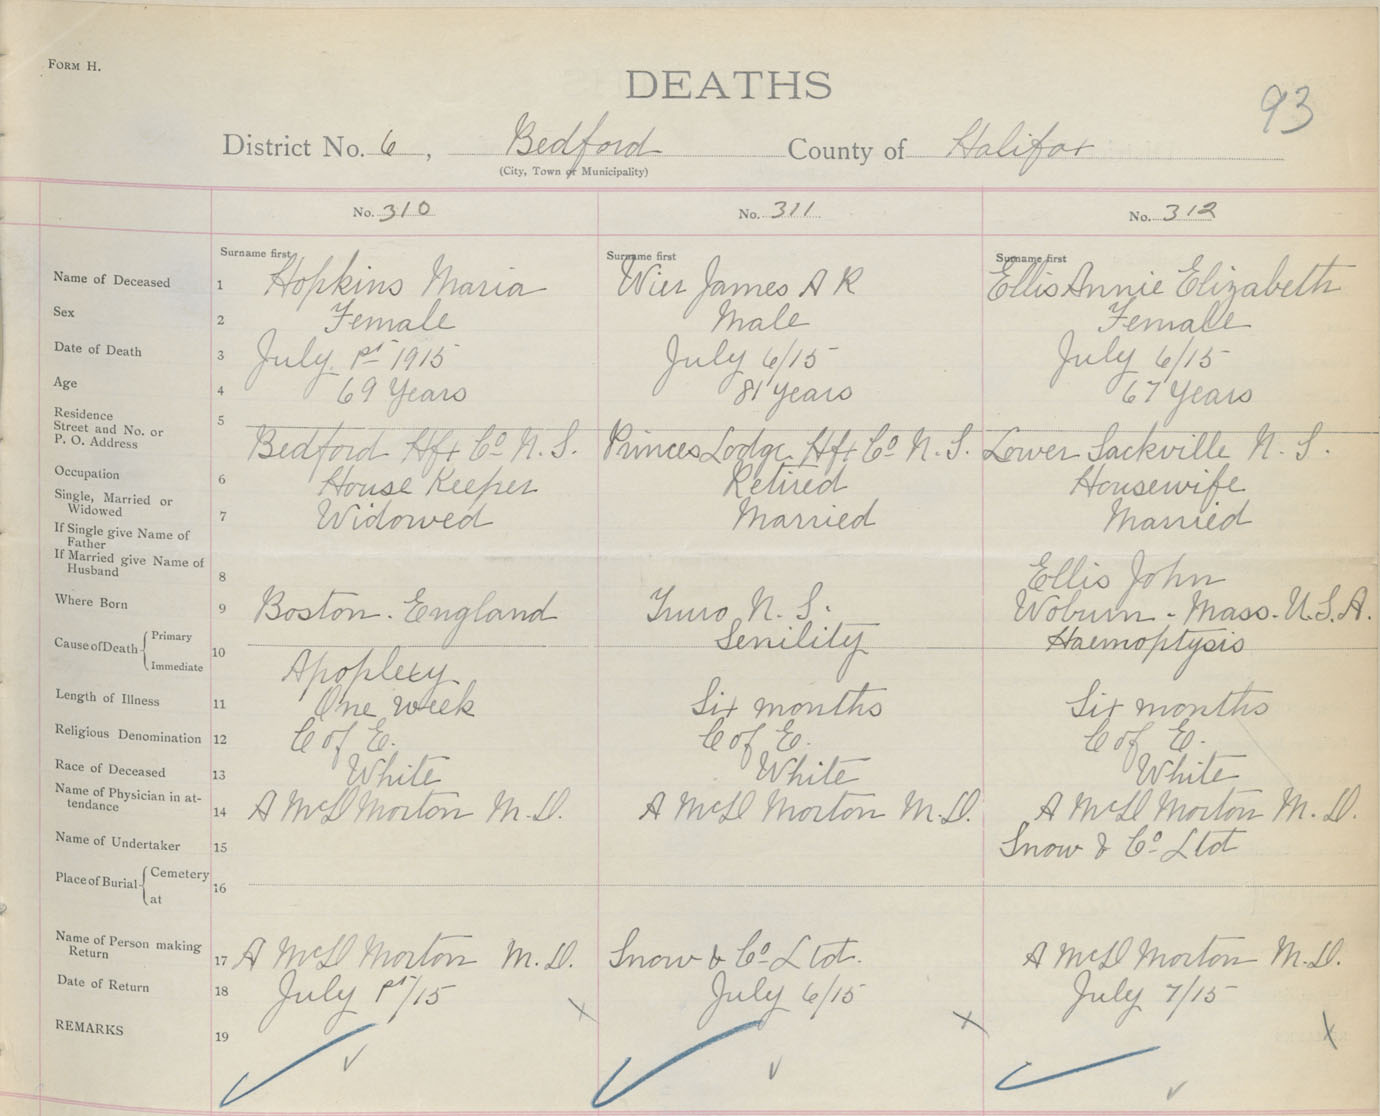 FORM H.
DEATHS
93
District No. 6, Bedford County of Halifax
(City, Town or Municipality)
No. 310 No. 311 No. 312
Surname first Surname first Surname first
Name of Deceased 1 Hopkins Maria Wier James A R Ellis Annie Elizabeth
Sex 2 Female Male Female
Date of Death 3 July 1st 1915 July 6/15 July 6/15
Age 4 69 Years 81 Years 67 Years
Residence
Street and No. or
P. O. Address 5 Bedford Hfx Co N. S. Princes Lodge Hfx Co N. S. Lower Sackville N. S.
Occupation 6 House Keeper Retired Housewife
Single, Married or
Widowed 7 Widowed Married Married
If Single give Name of
Father
If Married give Name of
Husband 8 Ellis John
Where Born 9 Boston - England Truro N. S. Woburn - Mass. U.S.A.
Cause of Death Primary Senility Haemoptysis
10
Immediate Apoplexy
Length of Illness 11 One week Six months Six months
Religious Denomination 12 C of E. C of E. C of E.
Race of Deceased 13 White White White
Name of Physician in at-
tendance 14 A McD Morton M.D. A McD Morton M.D. A McD Morton M.D.
Name of Undertaker 15 Snow & Co Ltd
Place of Burial Cemetery
16
at
Name of Person making
Return 17 A McD Morton M.D. Snow & Co Ltd. A McD Morton M.D.
Date of Return 18 July 1st/15 July 6/15 July 7/15
REMARKS 19